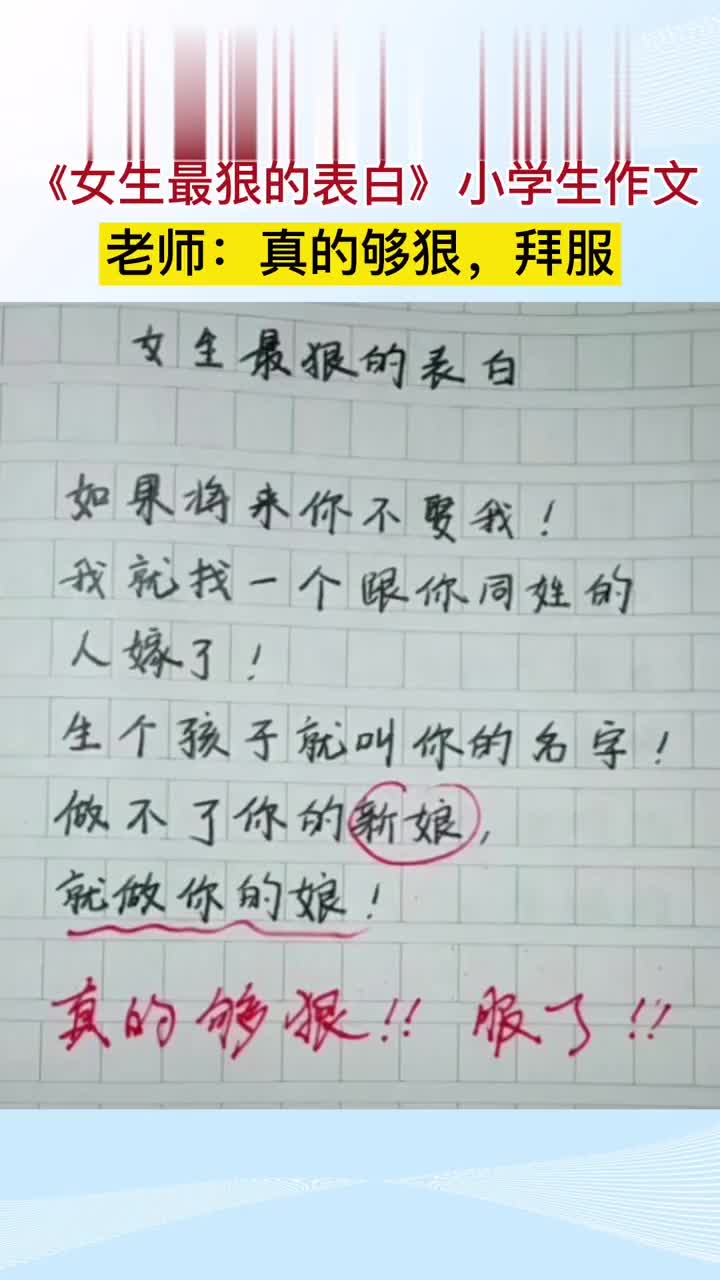 《女生最狠的表白》小学生作文
老师：真的够狠，拜服
女生最狠的表白
如果将来你不娶我！
我就找一个跟你同姓的
人嫁了！
生个孩子就叫你的名字！
做不了你的新娘，
就做你的娘！
真的够狠!! 服了!!